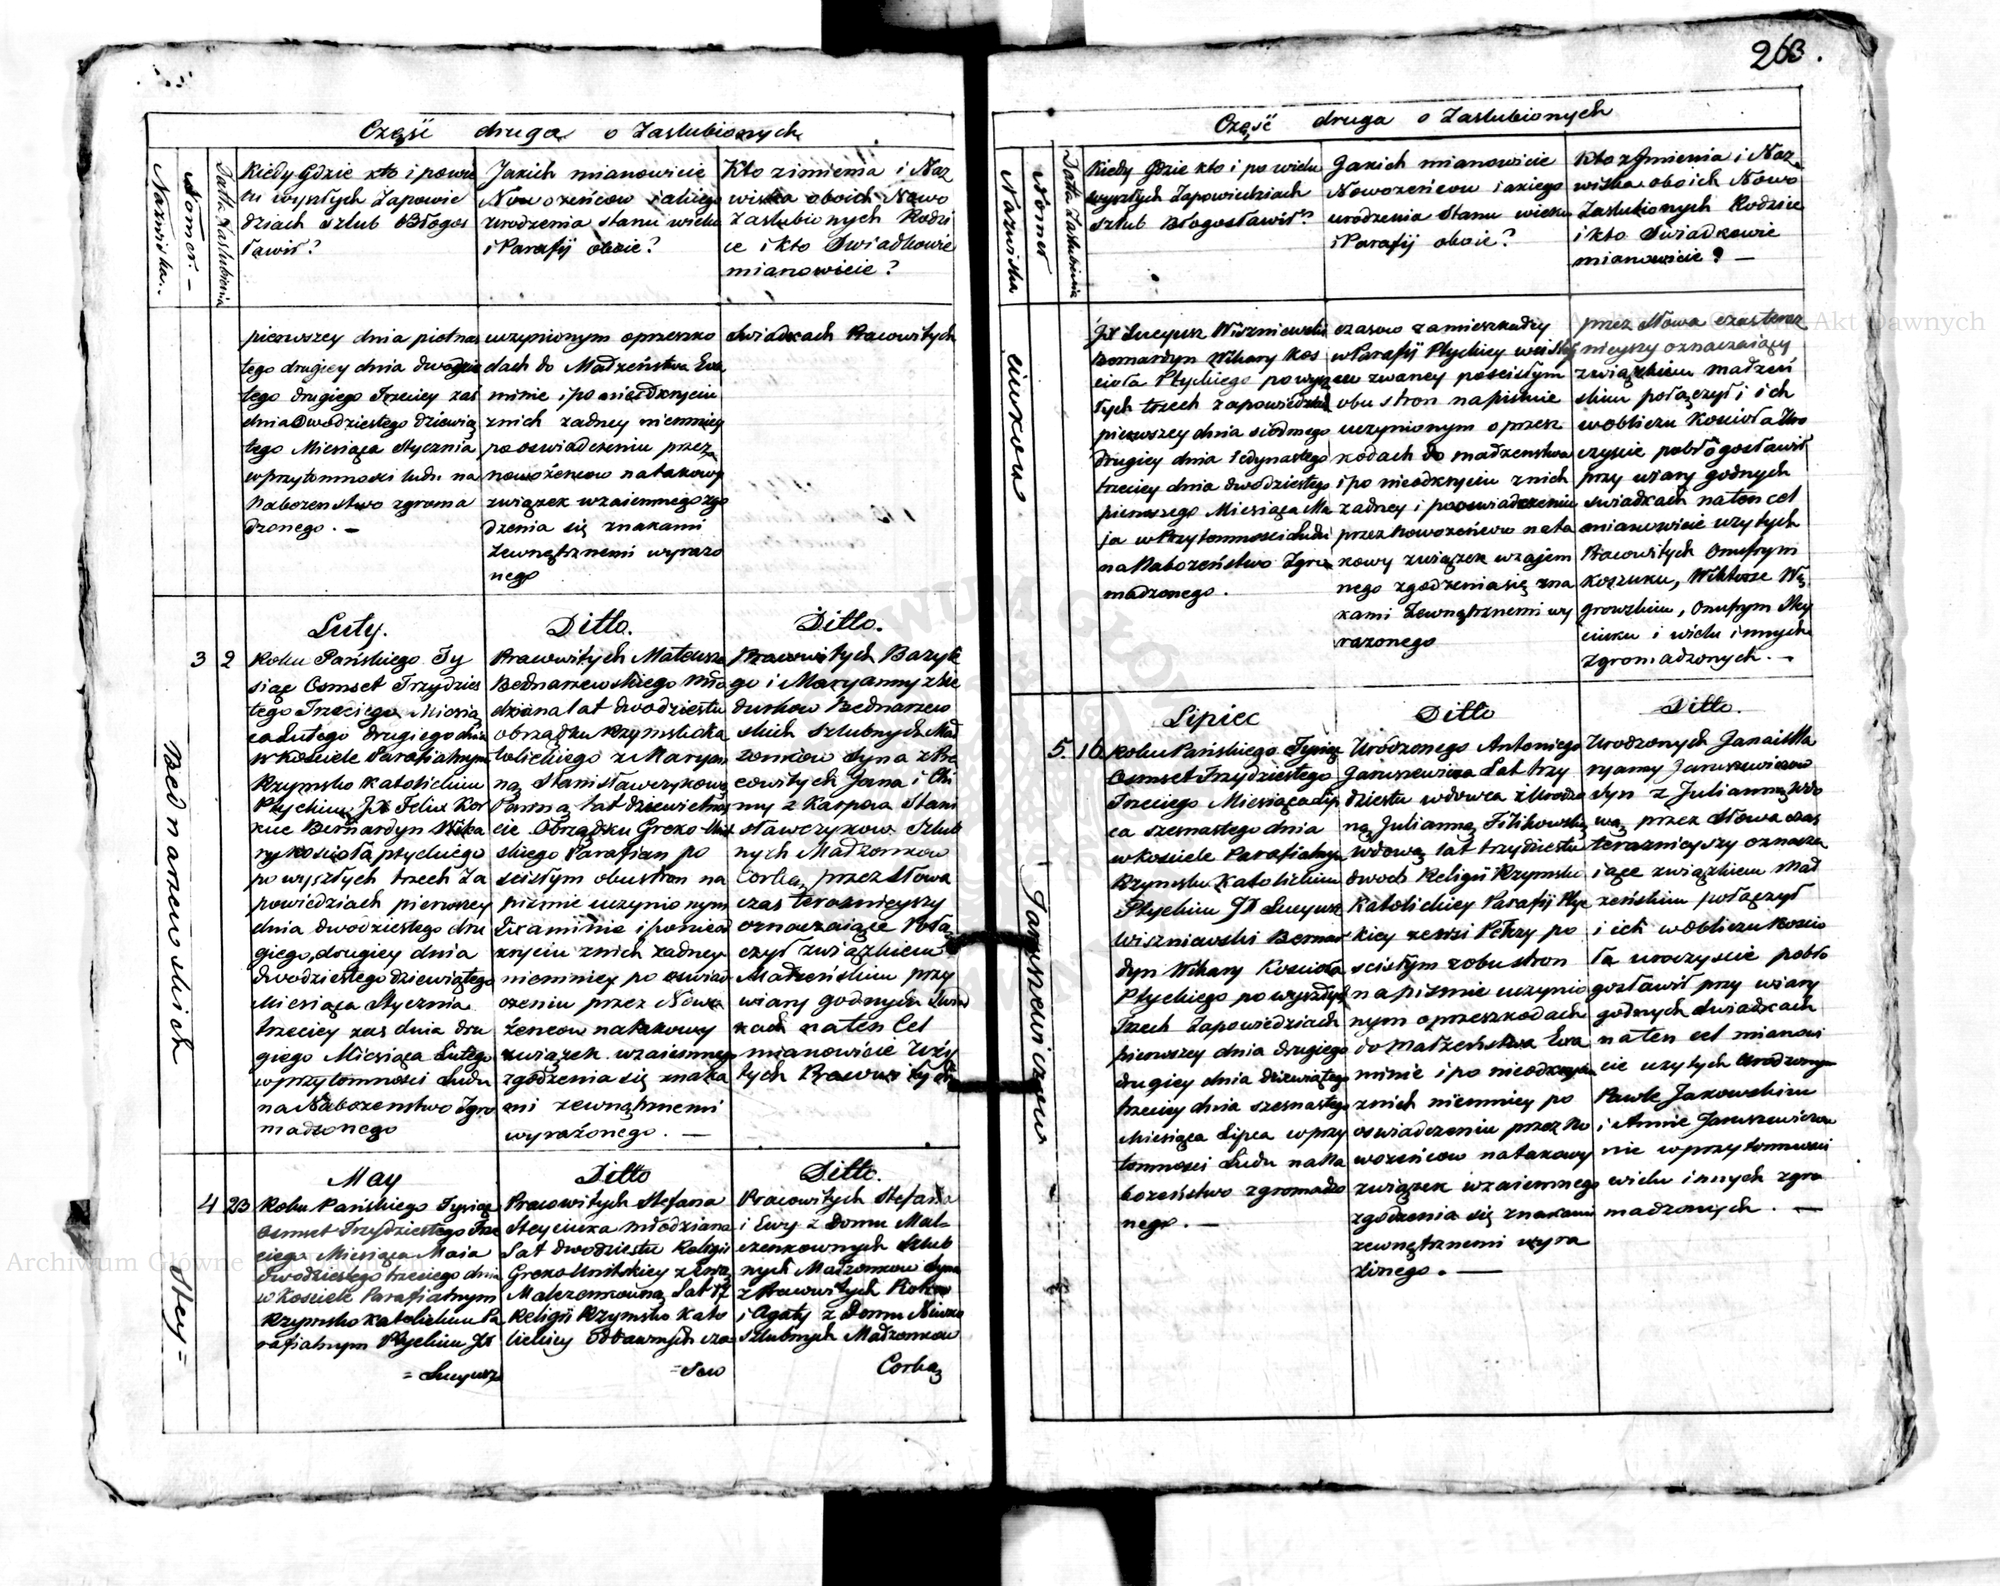 263.
Część druga o Zaslubionych
Nazwiska
Nomer.
Datta Zaslubienia
Kiedy Gdzie kto i po wie
lu wyszłych Zapowie
dziach szlub Błogos
ławił?
Jakich mianowicie
Nowożeńcow i akiego
urodzenia stanu wieku
i Parafij oboie?
Kto z imienia i Naz
wiska oboich Nowo
Zaslubionych Rodzi
ce i kto Swiadkowie
mianowicie?
pierwszey dnia pietnas
tego drugiey dnia dwudzies
tego drugiego Trzeciey zaś
dnia Dwodziestego dziewią
tego Miesiąca Stycznia
w przytomnosci ludu na
Nabozenstwo zgroma
dzonego. —
uczynionym o przeszko
dach do Madżeństwa Exa
minie i po nieodkryciu
znich żadney niemniey
po oswiadczeniu przez
nowożencow na takowy
związek wzaiemnego zgo
dzenia się znakami
Zewnętrznemi wyrażo
nego
Swiadkach Pracowitych
Bednarzewskich
Luty.
3 2
Roku Pańskiego Ty
siąc Osmset Trzydzies
tego Trzeciego Miesią
ca Lutego drugiego dnia
w Kosciele Parafialnym
Rzymsko Katolickim
Ptyckim JX Felix Kor
kuc Bernardyn Wika
ry kosciola ptyckiego
po wyszłych trzech Za
powiedziach pierwszey
dnia dwodziestego dru
giego, drugiey dnia
dwodziestego dziewiątego
Miesiąca Stycznia
trzeciey zas dnia dru
giego Miesiąca Lutego
w przytomnosci Ludu
na Nabozenstwo Zgro
madzonego
Ditto.
Pracowitych Mateusza
Bednarzewskiego mło
dziana lat dwodziestu
obrządku Rzymsko ka
tolickiego z Maryan
ną Stanisławczykową
Panną lat dziewietnas
cie Obrządku Greko Unit
skiego Parafian po
scisłym obustron na
pismie uczynionym
Examinie i po nieod
kryciu znich żadney
niemniey po oswiad
czeniu przez Nowo
żencow na takowy
związek wzaiemnego
zgodzenia się znaka
mi zewnętrznemi
wyrażonego. —
Ditto.
Pracowitych Bazyle
go i Maryanny z Nie
durkow Bednarzew
skich Szlubnych Mał
zonkow Syna z Pra
cowitych Jana i An
ny z Karpow Stani
sławczykow Szlub
nych Madzonkow
Corką, przez słowa
czas teraznieyszy
oznaczaiące Połą
czył związkiem
Madżeńskim przy
wiary godnych Swiad
kach na ten Cel
mianowicie Uży
tych Pracowitych
Stey=
May
4 23
Roku Pańskiego Tysiąc
Osmset Trzydziestego Trze
ciego Miesiąca Maia
dwodziestego trzeciego dnia
w Kosciele Parafialnym
Rzymsko Katolickim Pa
rafialnym Ptyckim JX
=Lucyusz
Ditto
Pracowitych Stefana
Steyciuka młodziana
Lat dwodziestu Religii
Greko Unitskiey z Ewą
Malczonkowną Lat 17
Religii Rzymsko Kato
lickiey od dawnych cza
=sow
Ditto.
Pracowitych Stefana
i Ewy z Domu Mal-
czenkownych Szlub
nych Madzonkow Syna
z Pracowitych Piotra
i Agaty z Domu
Szlubnych Madzonkow
Corką
Część druga o Zaslubionych
Nazwiska
Nomer
Datta Zaslubienia
Kiedy Gdzie kto i po wielu
wyszłych Zapowiedziach
szlub Błogosławił?
Jakich mianowicie
Nowożeńcow i akiego
urodzenia Stanu wieku
i Parafij oboie?
Kto z Imienia i Naz
wiska oboich Nowo
Zaslubionych Rodzice
i kto Swiadkowie
mianowicie? —
ciukow
JX Lucyusz Wiszniewski
Bernardyn Wikary Kos
cioła Ptyckiego po wysz
łych trzech zapowiedziach
pierwszey dnia siodmego
drugiey dnia iedynastego
trzeciey dnia dwodziestego
pierwszego Miesiąca Ma
ja w Przytomnosci Ludu
na Nabożeństwo Zgro
madzonego.
czasow zamieszkały
w Parafij Ptyckiey we Wsi
zwaney po scisłym
obu stron na pismie
uczynionym o przesz
kodach do madżenstwa
i po nieodkryciu z nich
zadney i po oswiadczeniu
przez Nowożeńcow na ta
kowy związek wzajem
nego zgodzenia się zna
kami Zewnętrznemi wy
rażonego
przez słowa czas teraz
nieyszy oznaczaiący
związkiem madżeń
skim połączył i ich
w obliczu Kosciołu Uro
czyscie pobłogosławił
przy wiary godnych
swiadkach na ten cel
mianowicie uzytych
Pracowitych Onufrym
Koszuku, Wiktorze Wę
growskim, Onufrym Stey
ciuku i wielu innych
zgromadzonych. —
Jaruszewiczow
Lipiec
5. 16
Roku Pańskiego Tysiąc
Osmset Trzydziestego
Trzeciego Miesiąca Lip
ca szesnastego dnia
w Kosciele Parafialnym
Rzymsko Katolickim
Ptyckim JX Lucyusz
Wiszniewski Bernar
dyn Wikary Kościoła
Ptyckiego po wyszłych
Trzech Zapowiedziach
pierwszey dnia drugiego
drugiey dnia dziewiątego
trzeciey dnia szesnastego
Miesiąca Lipca w przy
tomnosci Ludu na Na
bożeństwo zgromadzo
nego. —
Ditto
Urodzonego Antoniego
Jaruszewicza Lat trzy
dziestu wdowca z Urodzo
ną Julianną Filikowską
Wdową lat trzydziestu
dwoch Religij Rzymsko
Katolickiey Parafij Pty
ckiey ze wsi Petry po
scisłym z obu stron
na pismie uczynio
nym o przeszkodach
do Małżeństwa Exa
minie i po nieodkryciu
znich niemniey po
oswiadczeniu przez No
wożeńcow na takowy
związek wzaiemnego
zgodzenia się znakami
zewnętrznemi wyra
żonego. —
Ditto.
Urodzonych Jana i Ma
ryanny Jaruszewiczow
syn z Julianną Wdo
wą przez słowa czas
teraznieyszy oznacza
iące związkiem Mał
żeńskim połączył
i ich w obliczu Koscio
ła uroczyscie pobło
gosławił przy wiary
godnych swiadkach
na ten cel mianowi
cie uzytych Urodzonym
Pawle Jakowskim
i Annie Jaruszewiczow
nie w przytomnosci
wielu innych zgro
madzonych. —
Archiwum Główne Akt Dawnych